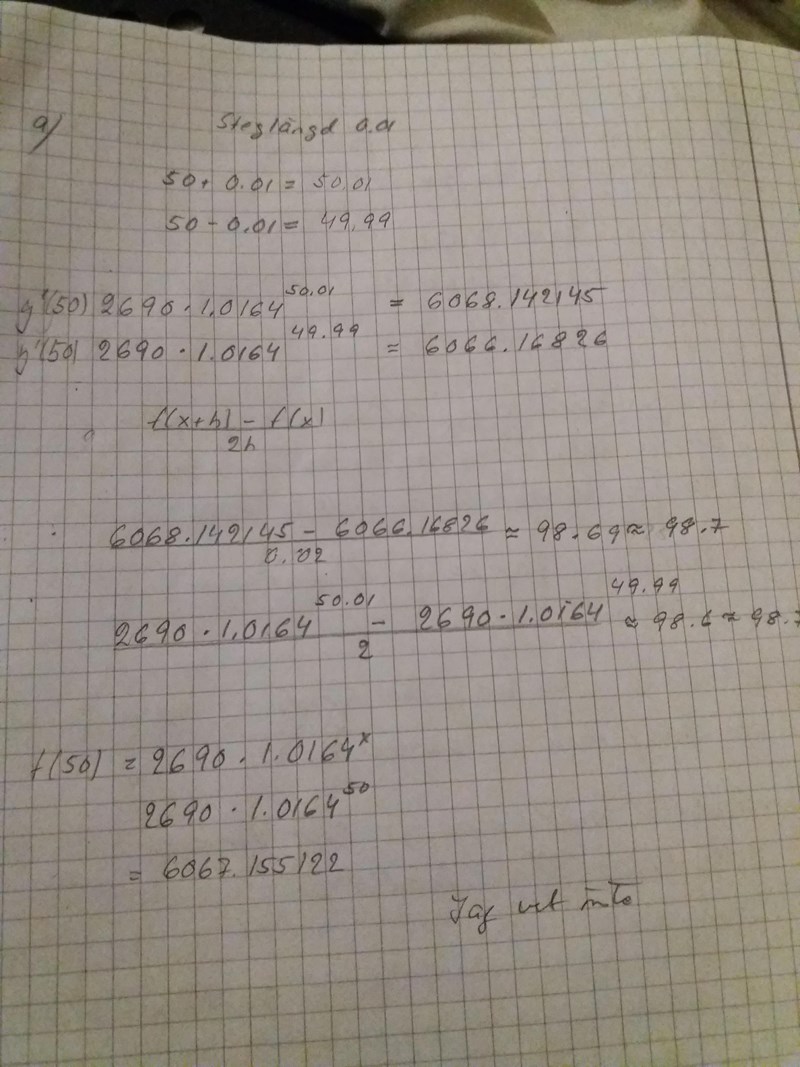 a)
Steglängd 0.01
50 + 0.01 = 50.01
50 - 0.01 = 49.99
y'(50) 2690 · 1.0164^50.01 = 6068.142145
y'(50) 2690 · 1.0164^49.99 = 6066.16826
f(x+h) - f(x)
2h
6068.142145 - 6066.16826 ≈ 98.69 ≈ 98.7
0.02
2690 · 1.0164^50.01 - 2690 · 1.0164^49.99 ≈ 98.6 ≈ 98.7
2
f(50) = 2690 · 1.0164^x
2690 · 1.0164^50
= 6067.155122
Jag vet inte